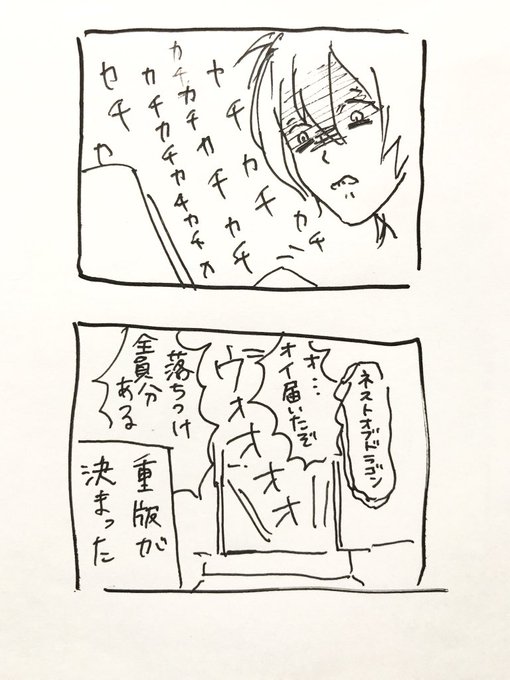 カチ
カチカチ
カチカチカチカチ
カチカチカチカチカ
カチカ
ネストオブドラゴン
オ…
オイ届いたぞ
ウオオオオ
落ちつけ
全員分
ある
重版が
決まった